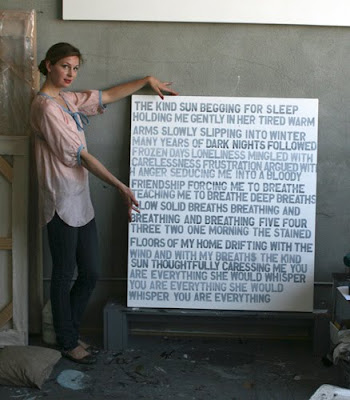 THE KIND SUN BEGGING FOR SLEEP
HOLDING ME GENTLY IN HER TIRED WARM
ARMS SLOWLY SLIPPING INTO WINTER
MANY YEARS OF DARK NIGHTS FOLLOWED
FROZEN DAYS LONELINESS MINGLED WITH
CARELESSNESS FRUSTRATION ARGUED WITH
ANGER SEDUCING ME INTO A BLOODY
FRIENDSHIP FORCING ME TO BREATHE
TEACHING ME TO BREATHE DEEP BREATHS
SLOW SOLID BREATHS BREATHING AND
BREATHING AND BREATHING FIVE FOUR
THREE TWO ONE MORNING THE STAINED
FLOORS OF MY HOME DRIFTING WITH THE
WIND AND WITH MY BREATHS THE KIND
SUN THOUGHTFULLY CARESSING ME YOU
ARE EVERYTHING SHE WOULD WHISPER
YOU ARE EVERYTHING SHE WOULD
WHISPER YOU ARE EVERYTHING